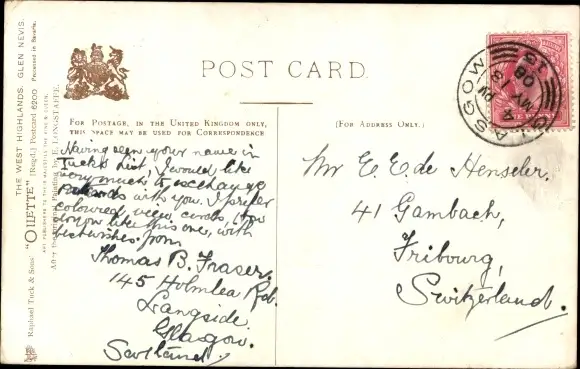 POST CARD.
FOR POSTAGE, IN THE UNITED KINGDOM ONLY,
THIS SPACE MAY BE USED FOR CORRESPONDENCE
(FOR ADDRESS ONLY.)
THE WEST HIGHLANDS. GLEN NEVIS.
Raphael Tuck & Sons' "OILETTE" [Regd.] Postcard 6200 Processed in Bavaria.
After the Original Painting by E. LONGSTAFFE.
GLASGOW
Having seen your name in
Tucks List, I would like
very much to exchange
with you. I prefer
coloured view cards,
do you like this one, with
best wishes. from
Thomas B. Fraser.
145 Holmlea Rd.
Langside.
Glasgow.
Scotland.
Mr E. E de Henseler.
41 Gambach,
Fribourg,
Switzerland.